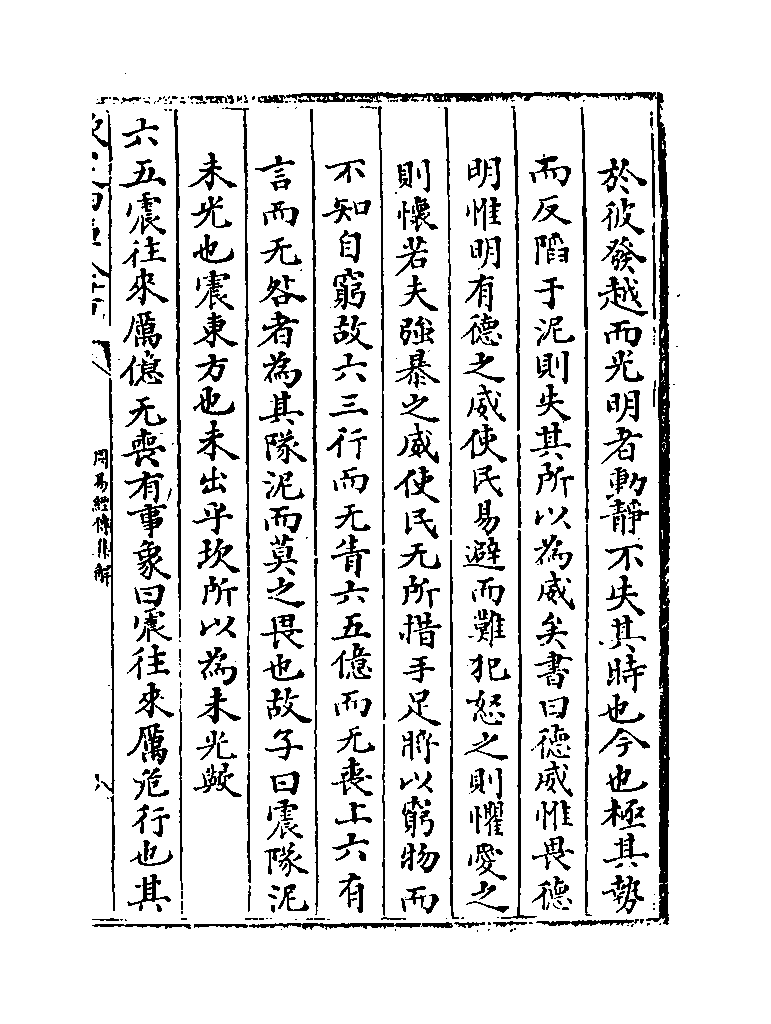 於彼發越而光明者動靜不失其時也今也極其勢
而反陷于泥則失其所以為威矣書曰德威惟畏德
明惟明有德之威使民易避而難犯怒之則懼愛之
則懷若夫強暴之威使民无所措手足將以窮物而
不知自窮故六三行而无眚六五億而无喪上六有
言而无咎者為其隊泥而莫之畏也故子曰震隊泥
未光也震東方也未出乎坎所以為未光歟
六五震往來厲億无喪有事象曰震往來厲危行也其
周易經傳集解